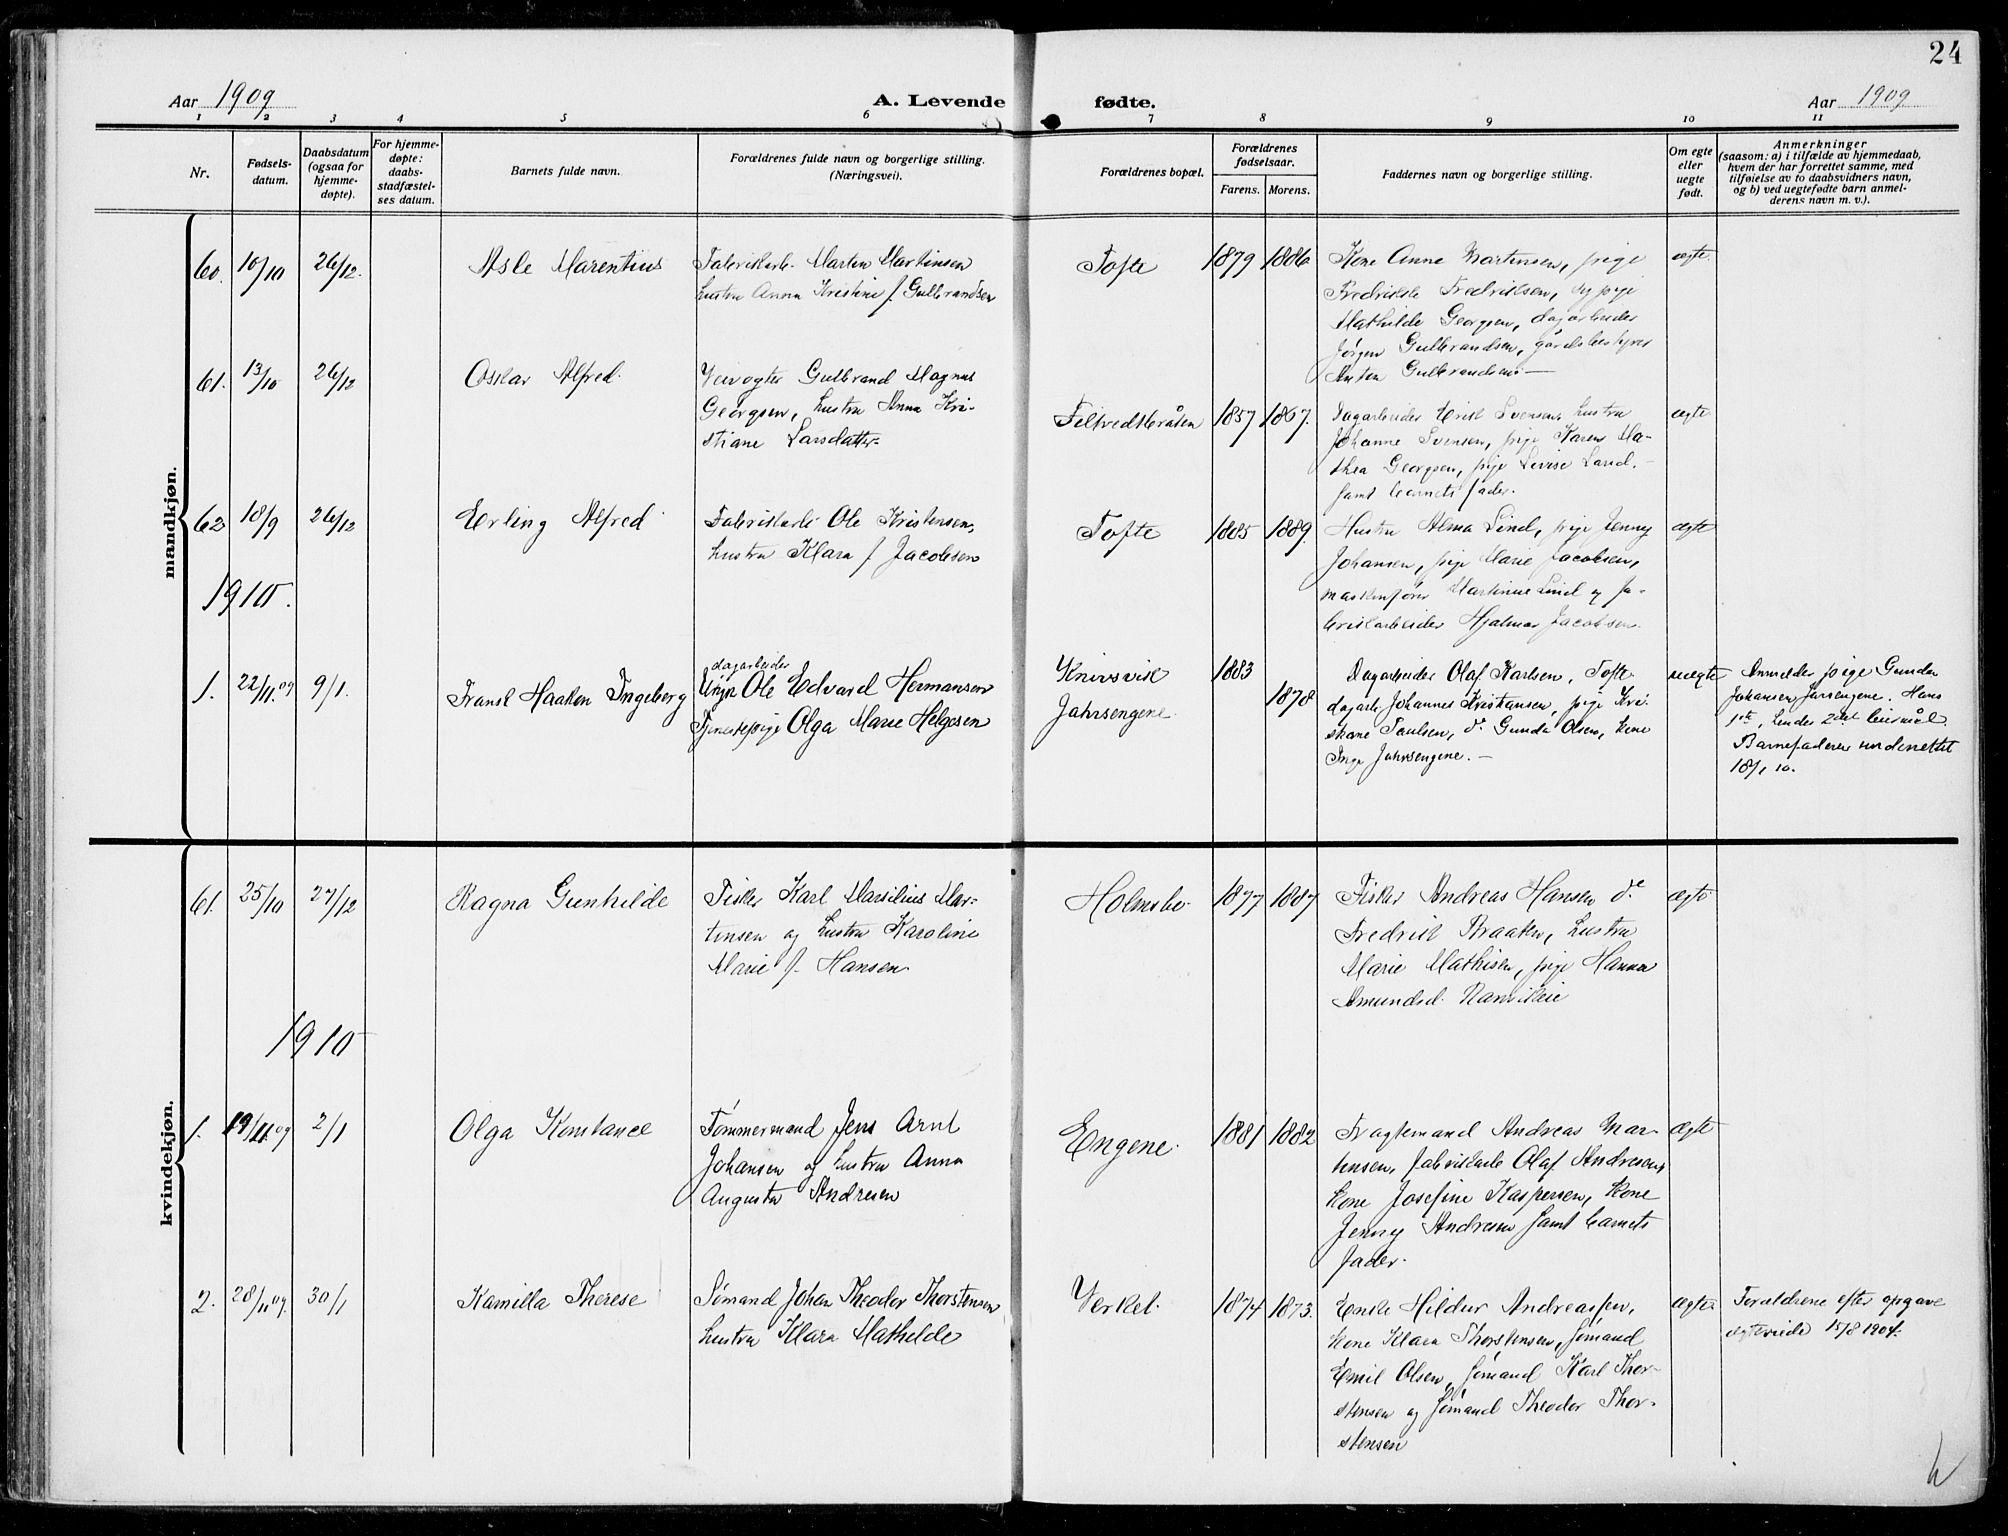 24
Aar 1909
A. Levende fødte.
Aar 1909
1 2 3 4 5 6 7 8 9 10 11
Nr.
Fødsels-
datum.
Daabsdatum
(ogsaa for
hjemme-
døpte).
For hjemme-
døpte:
daabs-
stadfæstel-
ses datum.
Barnets fulde navn.
Forældrenes fulde navn og borgerlige stilling.
(Næringsvei).
Forældrenes bopæl.
Forældrenes
fødselsaar.
Farens. Morens.
Faddernes navn og borgerlige stilling.
Om egte
eller
uegte
født.
Anmerkninger
(saasom: a) i tilfælde av hjemmedaab,
hvem der har forrettet samme, med
tilføielse av to daabsvidners navn,
og b) ved uegtefødte barn anmel-
derens navn m. v.).
mandkjøn.
60. 10/10 26/12. Asle Marentius
Fabrikarb. Marten Martinsen
hustru Anna Kristine f. Gulbrandsen
Tofte 1879 1886
Kone Anne Martinsen, pige
Fredrikke Fredriksen, og pige
Mathilde Georgsen, dagarbeider
Jørgen Gulbrandsen, gårdsbestyrer
Anton Gulbrandsen. —
ægte
61. 13/10 26/12 Oskar Alfred.
Veivogter Gulbrand Magnus
Georgsen, hustru Anna Kri-
stiane Larsdatter
Filtvedtbråten 1857 1867.
Dagarbeider Erik Svensen, hustru
Johanne Svensen, pige Karen Ma-
thea Georgsen, pige Lovise Lund.
samt barnets fader.
ægte
62 18/9 26/12 Erling Alfred
Fabrikarb. Ole Kristensen,
hustru Klara f. Jacobsen
Tofte 1885 1889.
Hustru Alma Lind, pige Jenny
Johansen, pige Marie Jacobsen,
maskinfører Martinius Lind og fa-
brikarbeider Hjalmar Jacobsen.
ægte
1910.
1. 22/11.09 9/1. Frank Haakon Ingeberg
dagarbeider
Ungk. Ole Edvard Hermansen
Tjenestepige Olga Marie Helgesen
Knivsvik
Jahrsengene.
1883
1878
Dagarbeider Olaf Karlsen, Tofte
dagarb. Johannes Kristiansen, pige Kri-
stiane Paulsen, do Gunda Olsen, kone
Inga Jahrsengene. —
uægte
Anmelder pige Gunda
Johansen, Jarsengene. Hans
1ste, hendes 2det leiermål
Barnefaderen underrettet
18/1 10.
kvindekjøn.
61. 25/10 27/12 Ragna Gunhilde
Fisker Karl Marsilius Mar-
tinsen og hustru Karoline
Marie f. Hansen.
Holmsbo 1877 1887
Fisker Andreas Hansen do
Fredrik Braaten, hustru
Marie Mathisen, pige Hanna
Amundsd. Ramvikeie
ægte
1910
1. 19/11.09 2/1 Olga Konstance
Tømmermand Jens Arnt
Johansen og hustru Anna
Augusta Andresen
Engene. 1881 1882
Fragtemand Andreas Mar-
tinsen, fabrikarb. Olaf Andresen,
kone Josefine Kaspersen, kone
Jenny Andresen samt barnets
fader.
ægte
2. 28/11 09. 30/1 Kamilla Therese
Sømand Johan Theodor Thorstensen
hustru Klara Mathilde
Verket. 1874 1873.
Enke Hildur Andreassen,
kone Klara Thorstensen, sømand
Emil Olsen, sømand Karl Thor-
stensen og sømand Theodor Thor-
stensen
ægte
Forældrene efter opgave
ægteviede 15/8 1904.